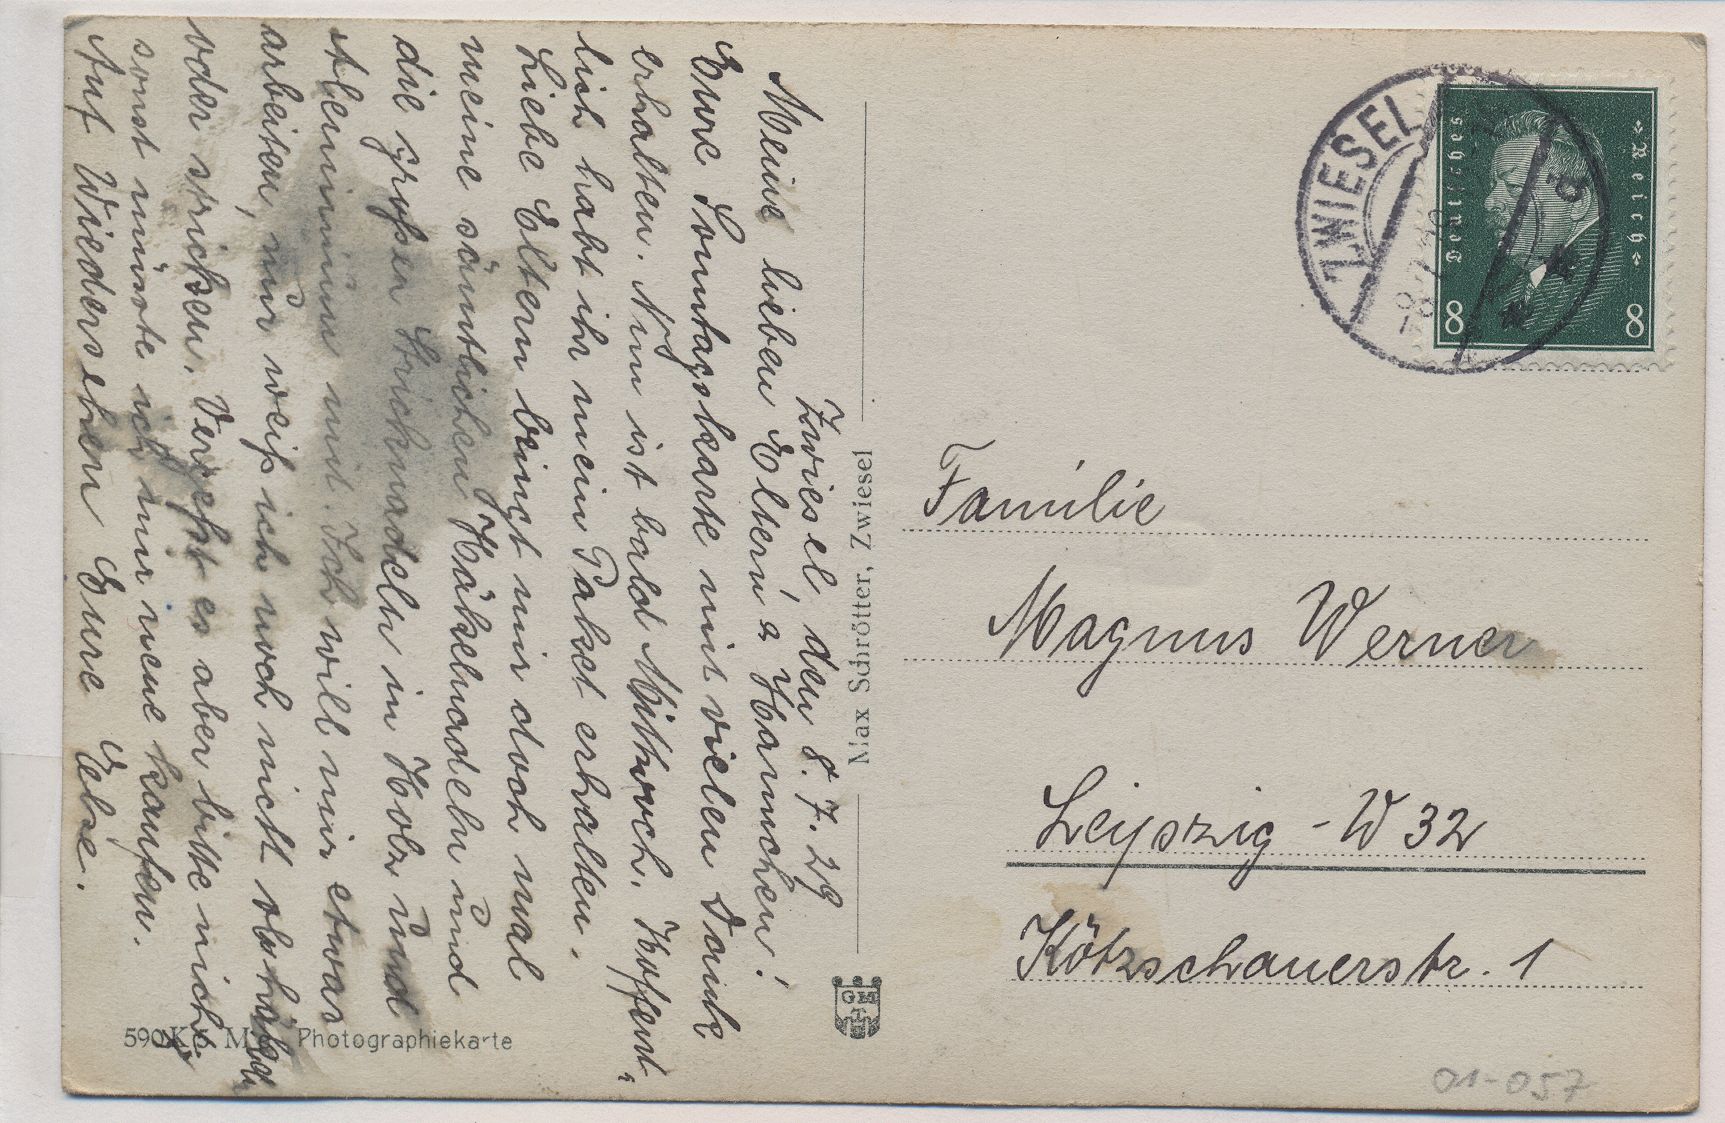 Zwiesel, den 8.7.29
Meine lieben Eltern u Hannchen!
Eure Sonntagskarte mit vielen Dank
erhalten. Nun ist bald Mittwoch. Hoffent-
lich habt ihr mein Paket erhalten.
Liebe Eltern bringt mir doch mal
meine sämtlichen Häkelnadeln und
die großen Stricknadeln in Holz und
Aluminium mit. Ich will mir etwas
arbeiten, nur weiß ich noch nicht ob häkeln
oder stricken. Vergeßt es aber bitte nicht
sonst müsste ich mir neue kaufen.
Auf Wiedersehen Eure Else.
Max Schrötter, Zwiesel
GM
Photographiekarte
ZWIESEL
Deutsches
Reich
8
8
Familie
Magnus Werner
Leipzig - W 32
Kötzschauerstr. 1
01-057